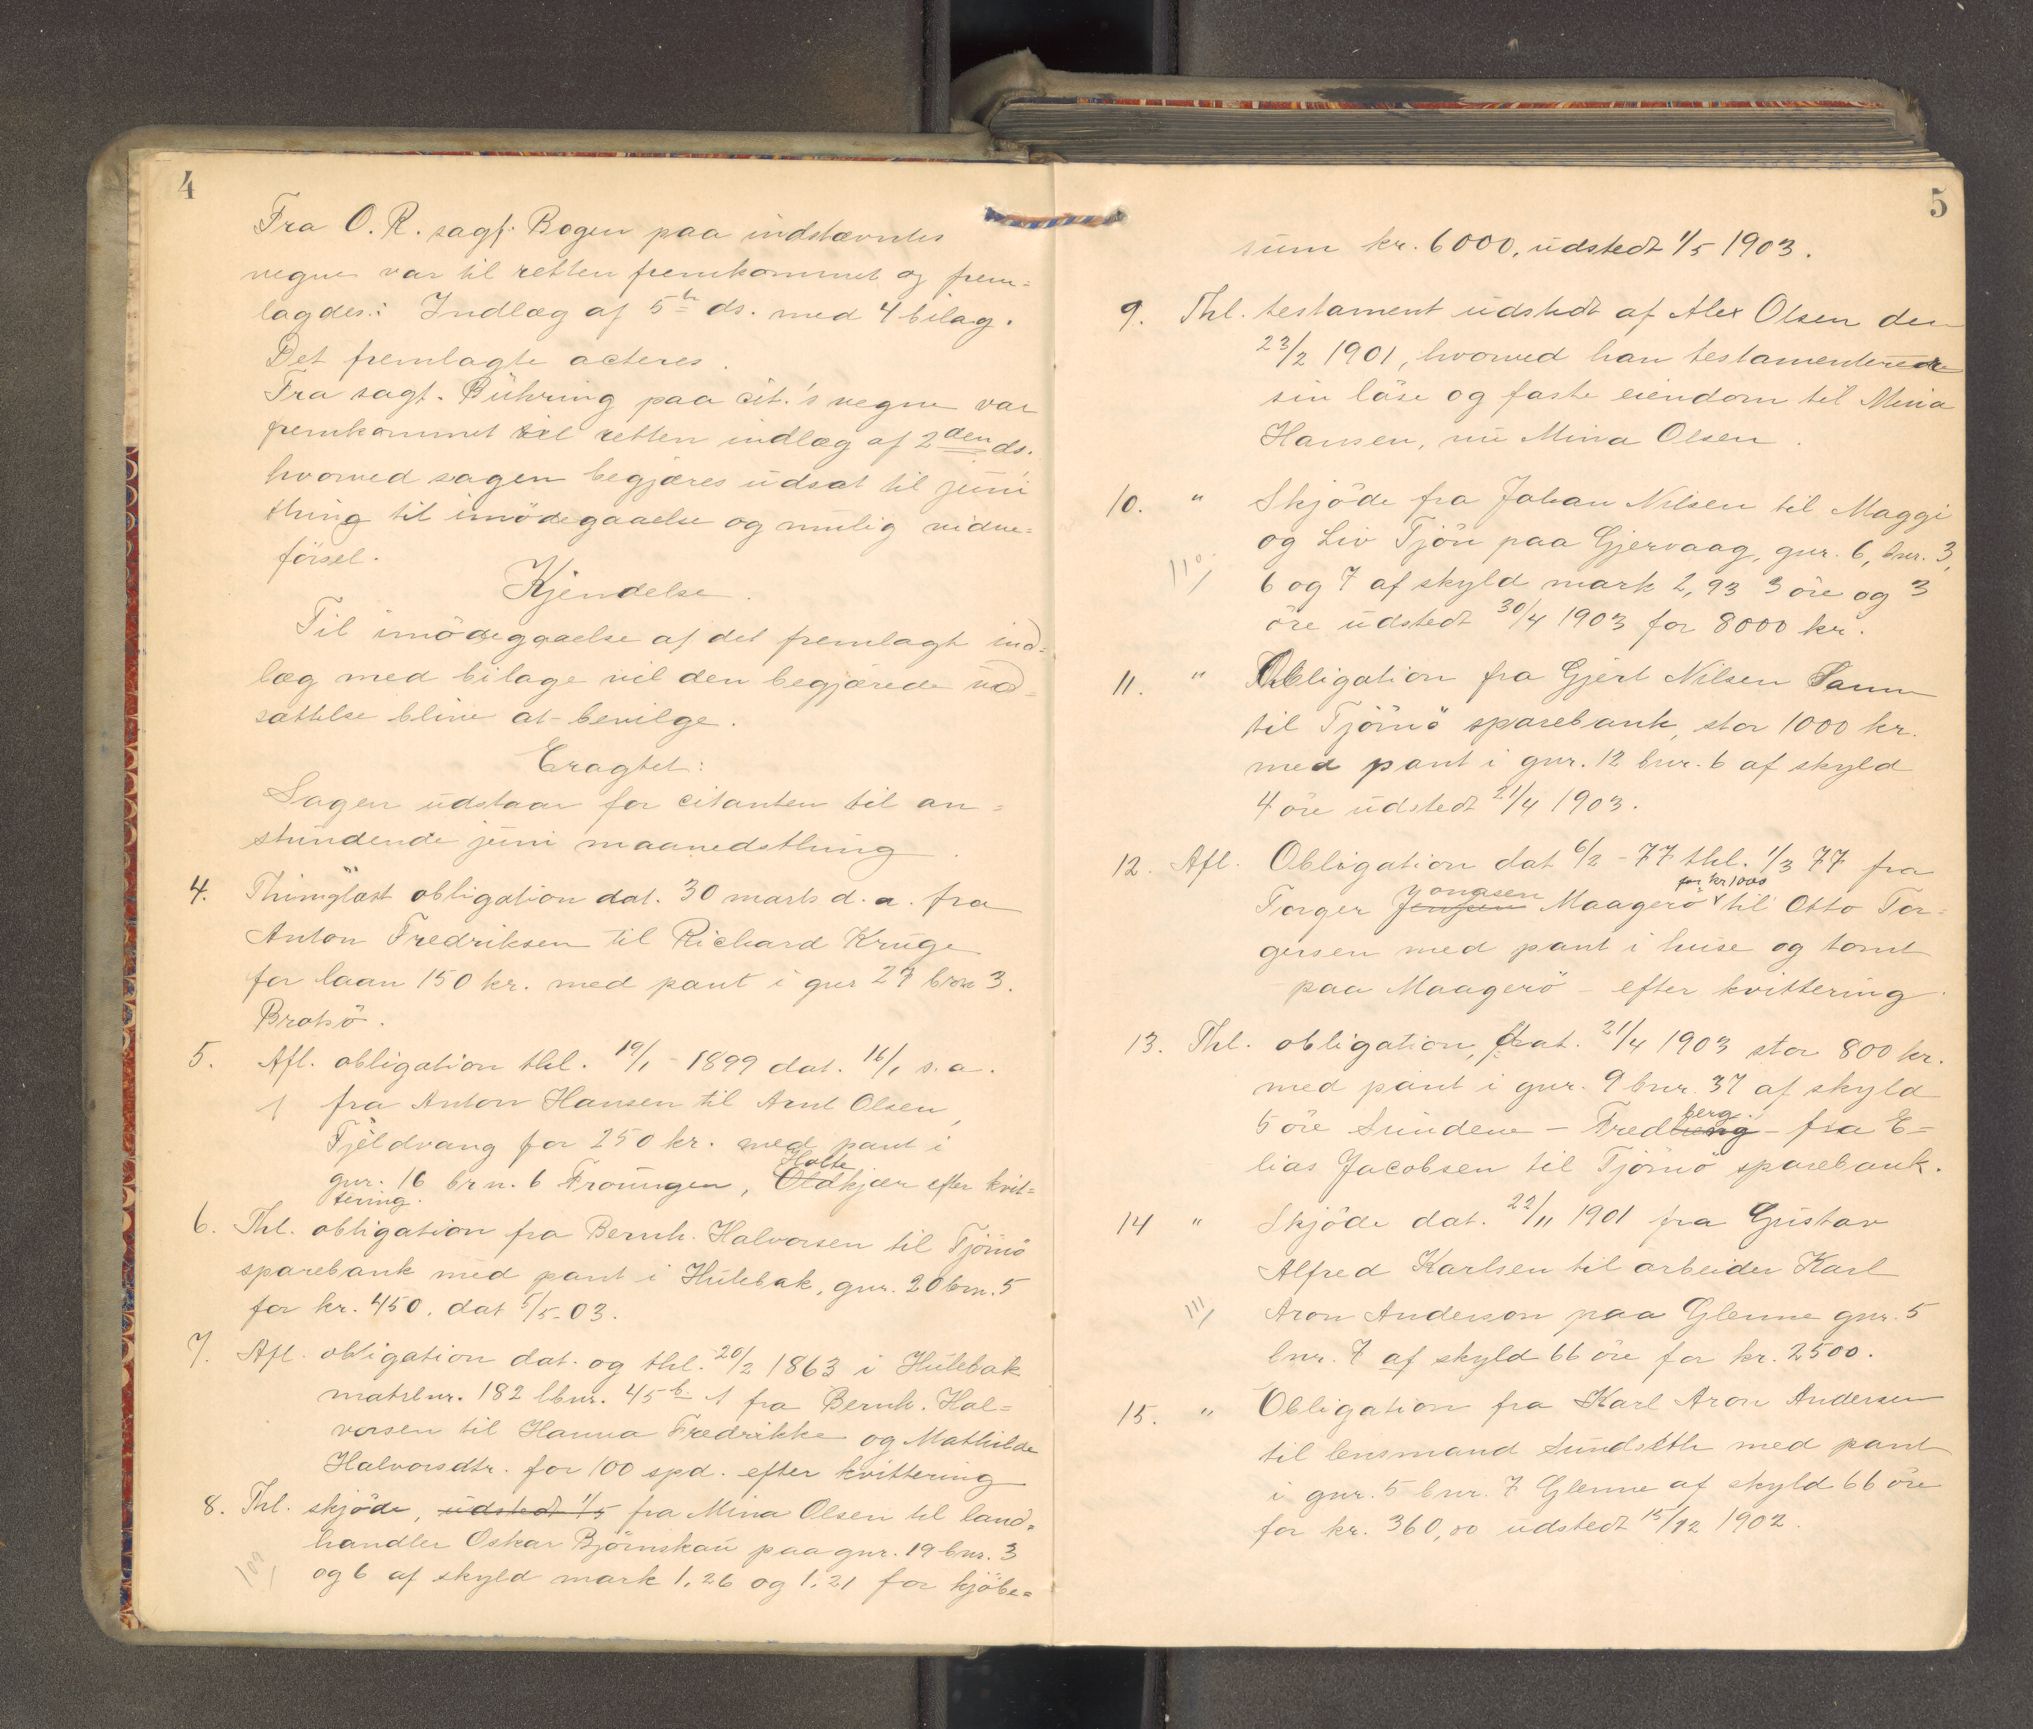 4
Fra O. R. sagf. Bogen paa indstævntes
vegne var til retten fremkommet og frem=
lagdes: Indlæg af 5te ds. med 4 bilag.
Det fremlagte acteres.
Fra sagf. Bühring paa cit.'s vegne var
fremkommet til retten indlæg af 2den ds.
hvorved sagen begjæres udsat til juni
thing til imödegaaelse og mulig vidne=
försel.
Kjendelse.
Til imödegaaelse af det fremlagt ind=
læg med bilage vil den begjærede ud=
sættelse blive at bevilge.
Eragtet:
Sagen udstaar for citanten til an=
stundende juni maanedsthing.
4. Thinglæst obligation dat. 30 marts d. a. fra
Anton Fredriksen til Richard Kruge
for laan 150 kr. med pant i gnr 27 brn 3.
Bratsö.
5. Afl. obligation thl. 19/1 - 1899 dat. 16/1 s. a.
fra Anton Hansen til Arnt Olsen,
Fjeldvang for 250 kr. med pant i
Holte
gnr. 16 brn. 6 Froungen, Oldkjær efter kvit=
tering.
6. Thl. obligation fra Bernh. Halvorsen til Tjömö
sparebank med pant i Hulebak, gnr. 20 brn. 5
for kr. 450. dat 5/5-03.
7. Afl. obligation dat. og thl. 20/2 1863 i Hulebak
matrlnr. 182 lbnr. 45b fra Bernh. Hal=
vorsen til Hanna Fredrikke og Mathilde
Halvorsdtr. for 100 spd. efter kvittering
8. Thl. skjöde, udstedt 1/5 fra Mina Olsen til land=
handler Oskar Björnskau paa gnr. 19 bnr. 3
109
og 6 af skyld mark 1,26 og 1,21 for kjöbe=
5
sum kr. 6000, udstedt 1/5 1903.
9. Thl. testament udstedt af Alex Olsen den
23/2 1901, hvorved han testamenterede
sin löse og faste eiendom til Mina
Hansen, nu Mina Olsen.
10. " Skjöde fra Johan Nilsen til Maggi
og Liv Tjön paa Gjervaag, gnr. 6, bnr. 3,
110
6 og 7 af skyld mark 2,93 3 öre og 3
öre udstedt 30/4 1903 for 8000 kr.
11. " Obligation fra Gjert Nilsen Sann
til Tjömö sparebank, stor 1000 kr.
med pant i gnr. 12 bnr. 6 af skyld
4 öre udstedt 21/4 1903.
12. Afl. Obligation dat 6/2 - 77 thl. 1/3 77 fra
Jonasen for kr 1000
Torger Jensen Maagerö til Otto Tor=
gersen med pant i huse og tomt
paa Maagerö - efter kvittering.
13. Thl. obligation, dat. 21/4 1903 stor 800 kr.
med pant i gnr. 9 bnr. 37 af skyld
berg
5 öre Sundene - Fredheng - fra E=
lias Jacobsen til Tjömö sparebank.
14 " Skjöde dat. 22/11 1901 fra Gustav
Alfred Karlsen til arbeider Karl
111
Aron Anderson paa Glenne gnr. 5
bnr. 7 af skyld 66 öre for kr. 2500.
15. " Obligation fra Karl Aron Andersen
til lensmand Sundseth med pant
i gnr. 5 bnr. 7 Glenne af skyld 66 öre
for kr. 360,00 udstedt 15/12 1902.